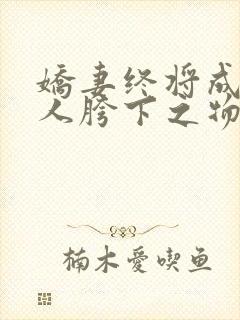 嬌妻终将成
人胯下之物
楠木愛喫鱼